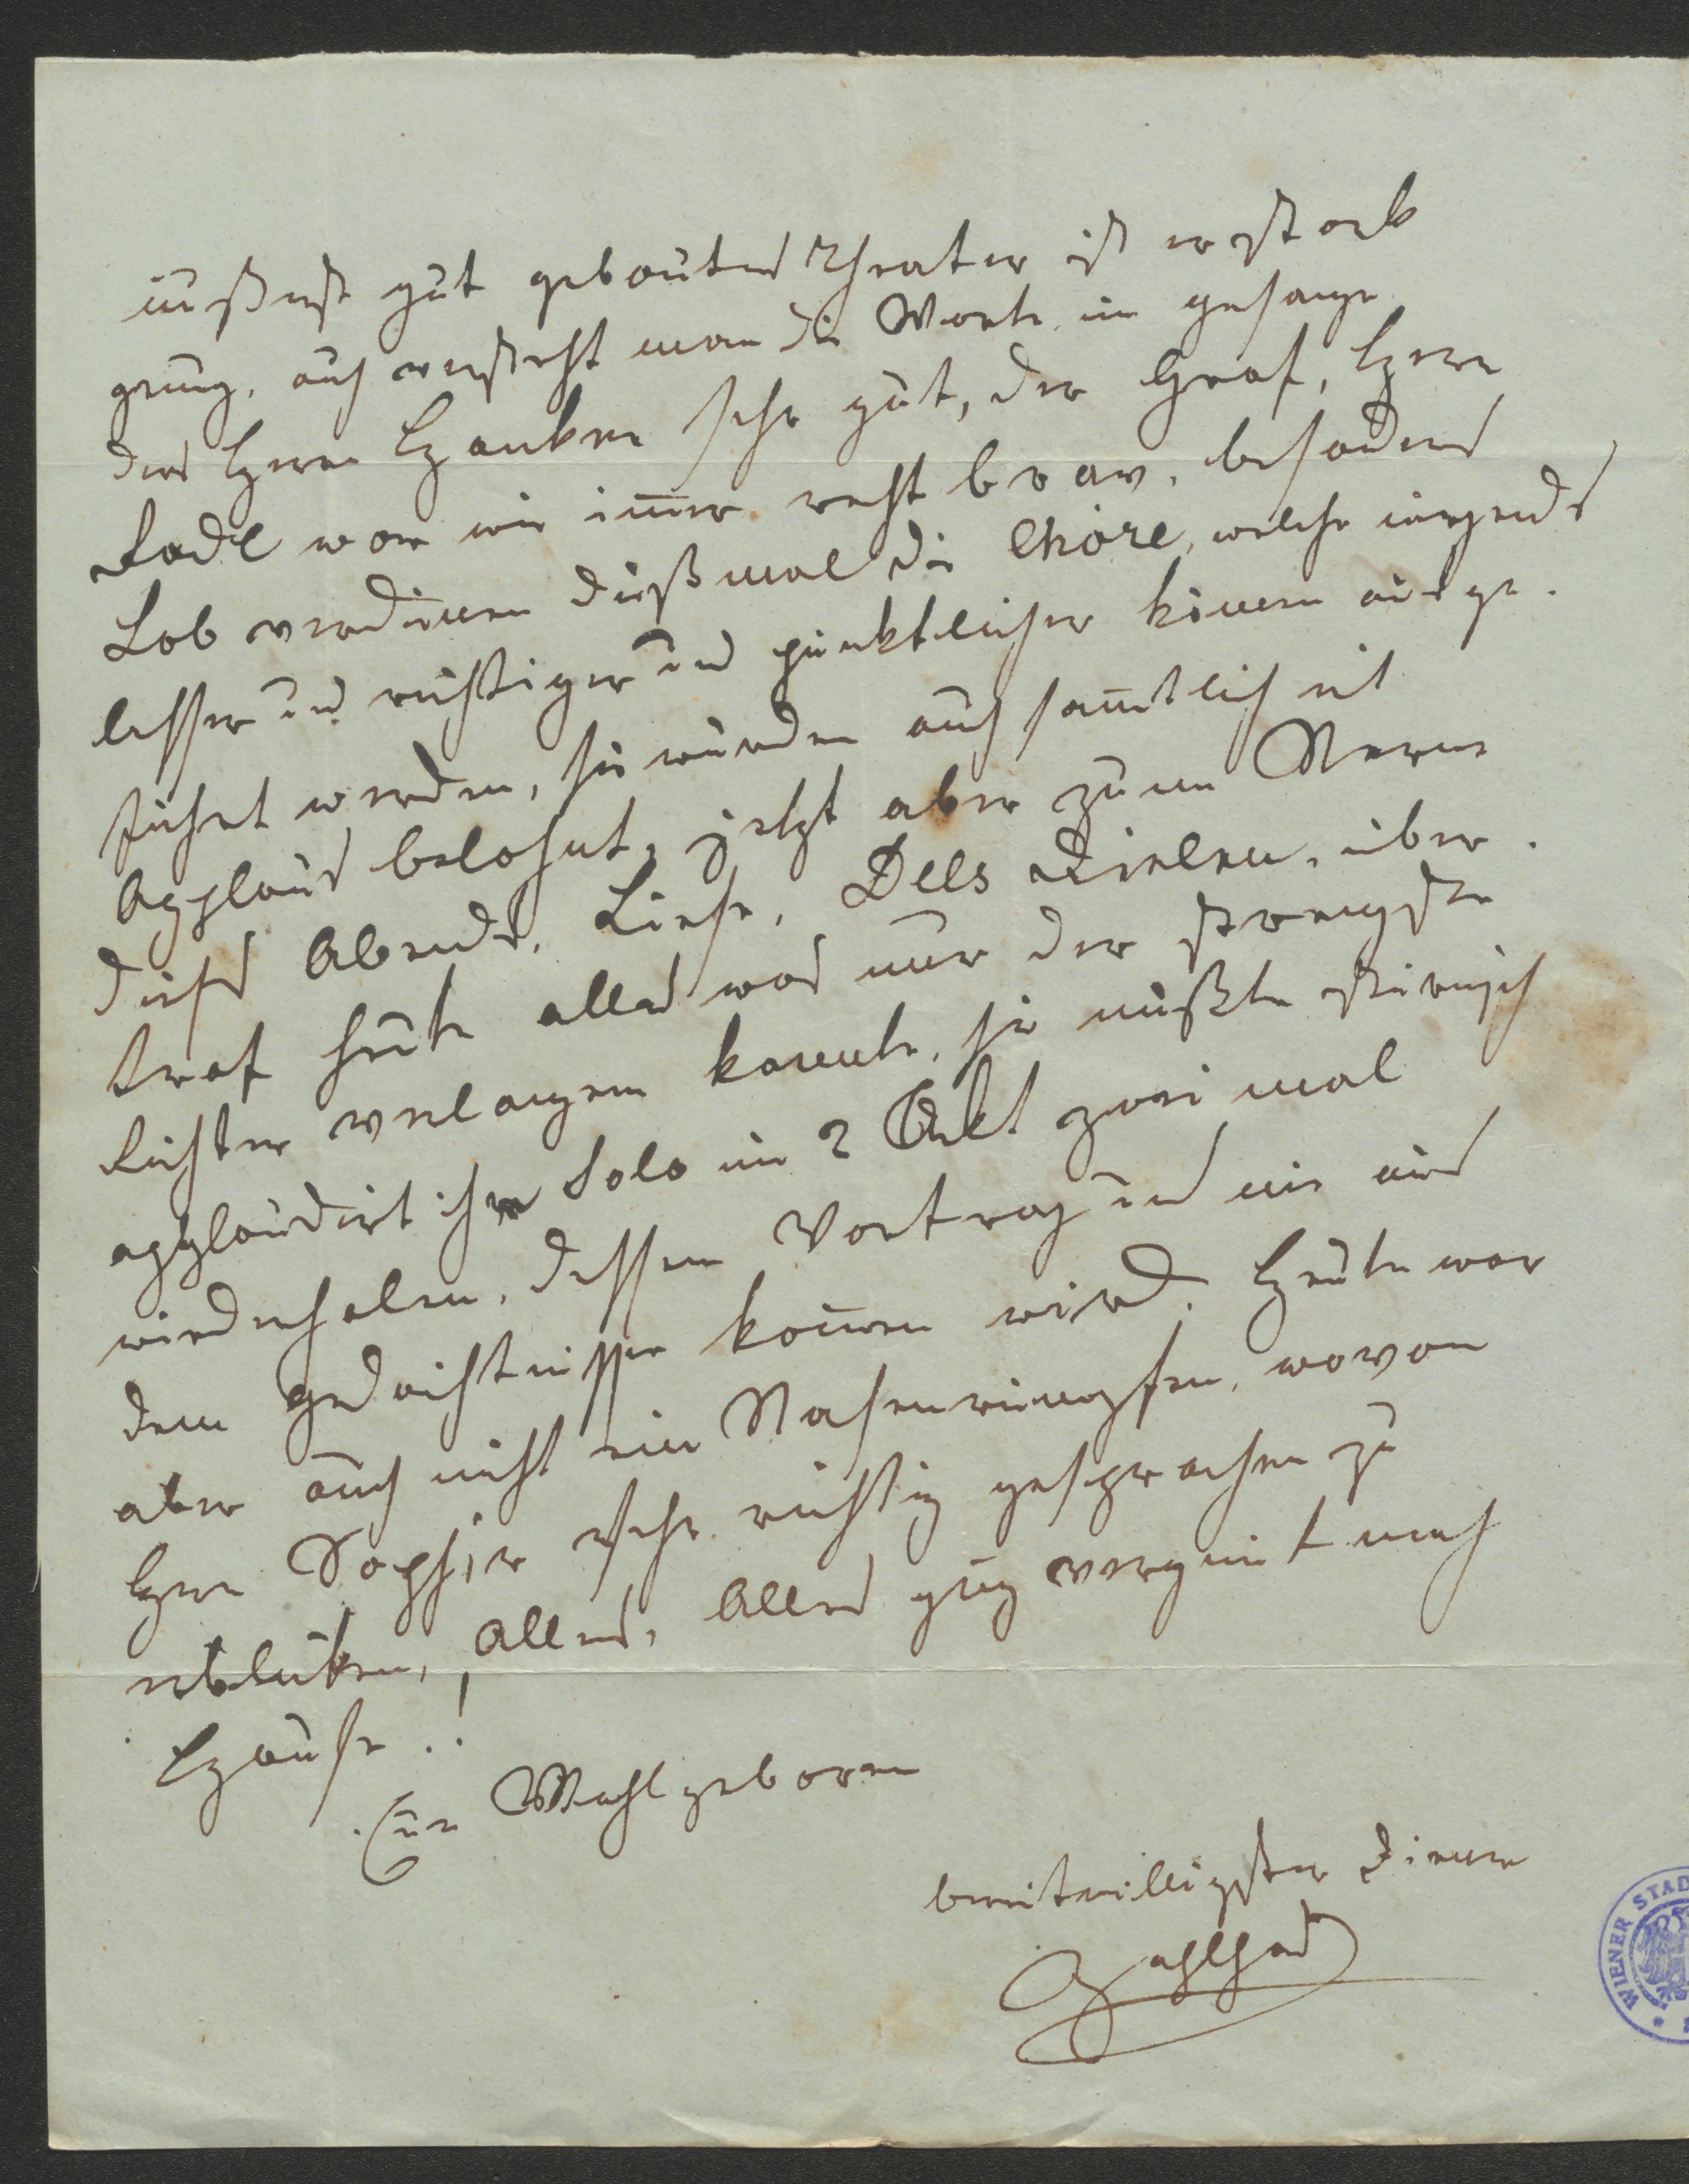 äußerst gut gebautes Theater ist er stark
genug, auch versteht man die Worte im gesange
des Herrn Hanken sehr gut, der Graf, Herr
Radl war wie imer recht brav, besonders
Lob verdienen dießmal die Chöre, welche nirgends
besser und richtiger und pünktlicher könen ausge-
führt werden, sie wurden auch samtlich mit
Applaus belohnt, jetzt aber zum Nerve
dieses Abends, Liese, Dlls Dielen, über-
traf heute alles was nur der strengste
Richter verlangen konnte, sie mußte stürmisch
applaudirt ihr Solo im 2 Ackt zwei mal
wiederholen, dessen Vortrag und nie aus
dem gedächtnisse komen wird. Heute war
aber auch nicht ein Nasenrümpfen, wovon
Herr Saphir sehr richtig gesprochen zu
erbliken, Alles, Alles ging vergnügt nach
Hause..!
Euer Wohlgeboren
bereitwilligster Diener
Zahlhas
WIENER STAD